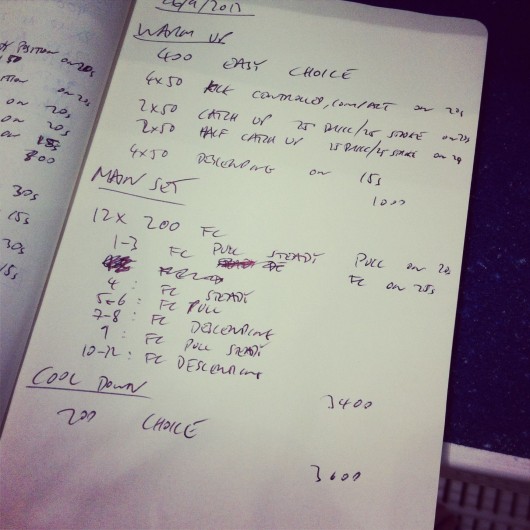 POSITION on 20s
50
on 20s
on 20s
on 20s
on 15s
800
30s
15s
30s
15s
WARM UP
400 EASY CHOICE
4x50 CONTROLLED, on 20s
2x50 CATCH UP 25 /25 on 20s
2x50 HALF CATCH UP 25 /25 on 20
4x50 DESCENDING on 15s
1000
MAIN SET
12 x 200 FC
1-3 FC PULL STEADY PULL on 20
FC on 25s
4 : FC STEADY
5-6 : FC PULL
7-8 : FC DESCENDING
9 : FC PULL STEADY
10-12 : FC DESCENDING
3400
COOL DOWN
200 CHOICE
3600